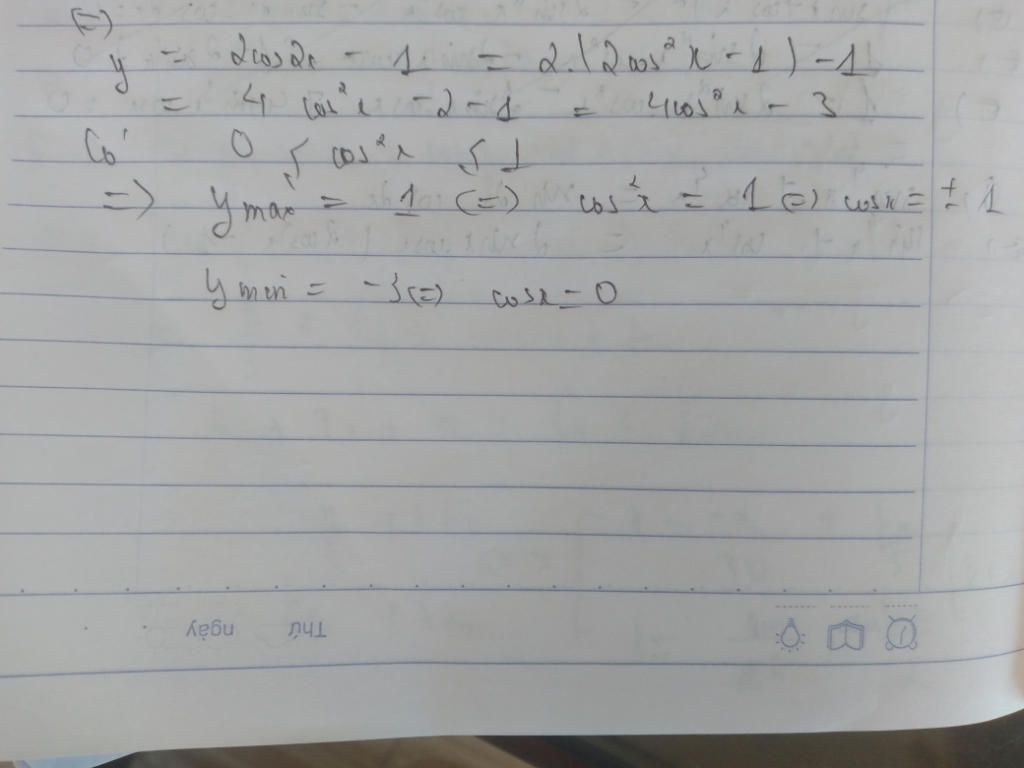 (=)
y = 2cos2x - 1 = 2.(2cos²x - 1) - 1
= 4 cos²x - 2 - 1 = 4cos²x - 3
Có 0 ≤ cos²x ≤ 1
=> y max = 1 (=) cos²x = 1 (=) cosx = ± 1
y min = -3 (=) cosx = 0
Thứ ngày